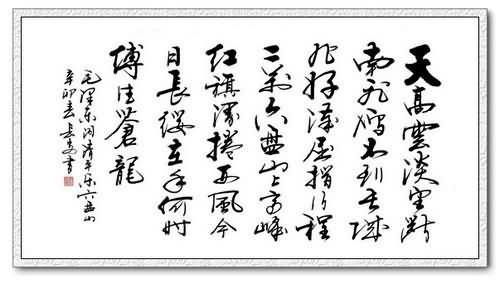 天高雲淡望斷
南飛雁不到長城
非好漢屈指行程
二萬六盘山上高峰
红旗漫捲西風今
日長纓在手何时
縛住蒼龍
毛泽东词清平乐六盘山
辛卯春 书